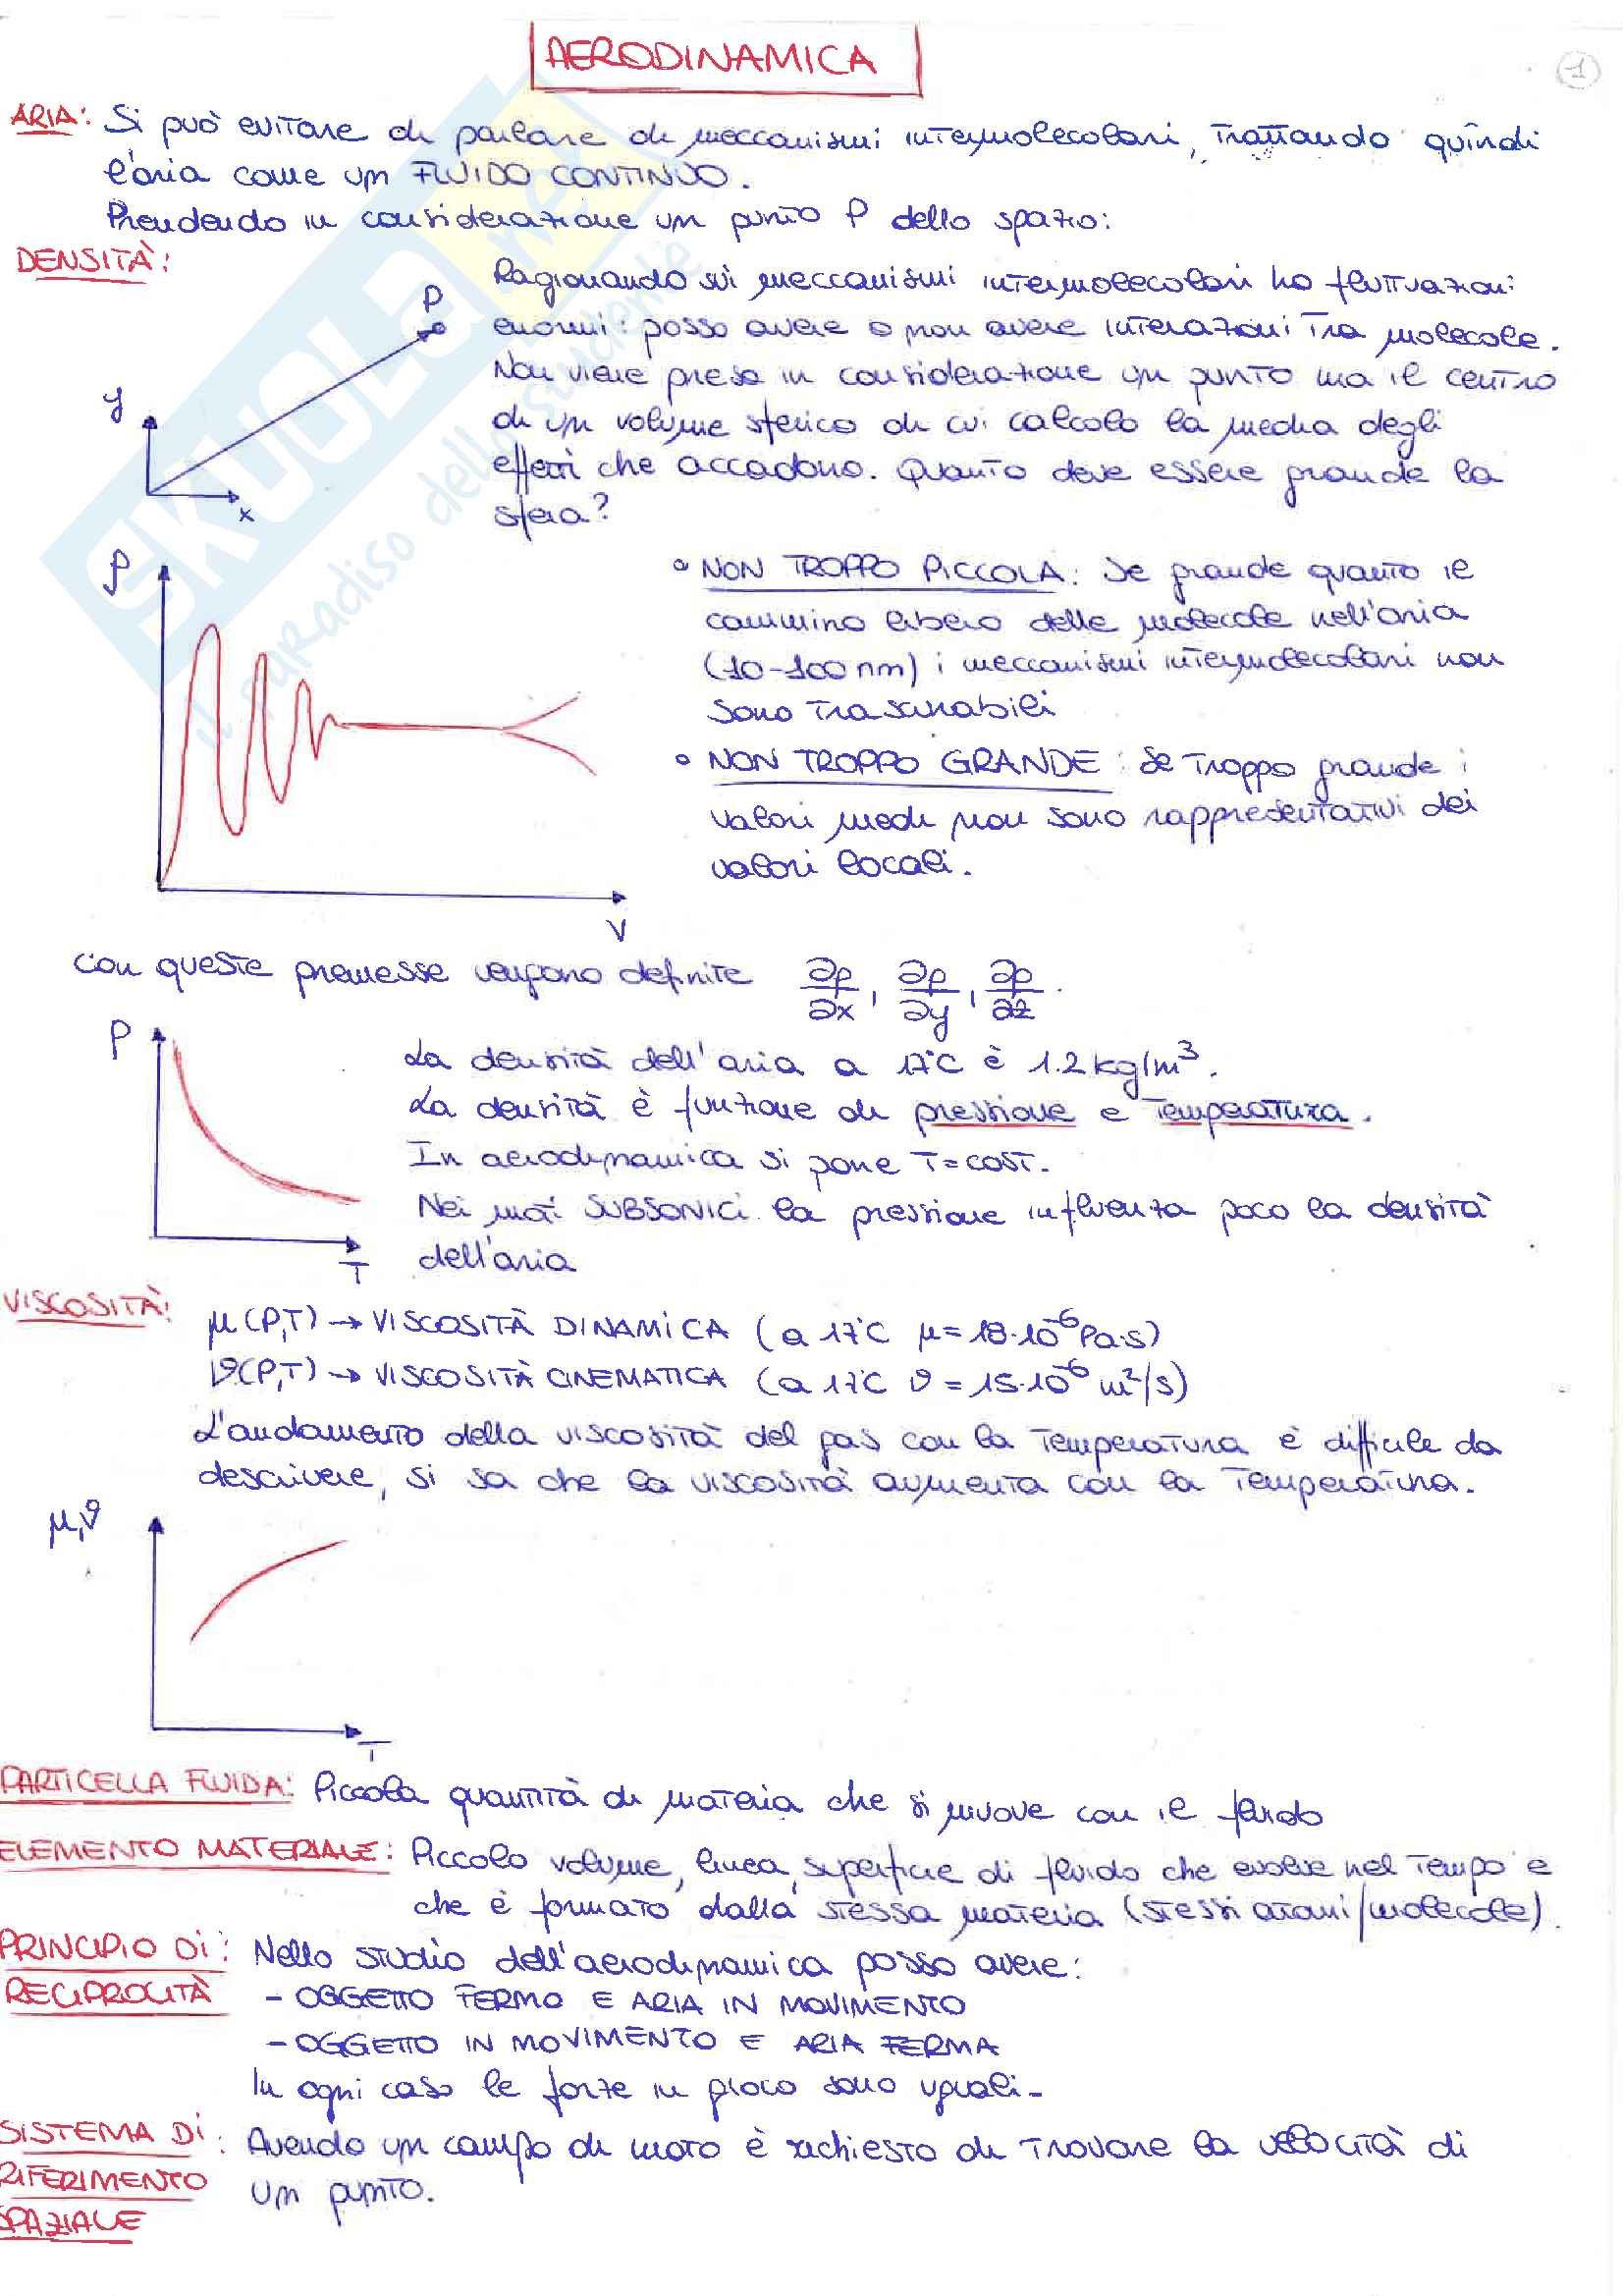 AERODINAMICA
1
ARIA: Si può evitare di parlare di meccanismi intermolecolari, trattando quindi
l'aria come un FLUIDO CONTINUO.
Prendendo in considerazione un punto P dello spazio:
DENSITÀ:
P
y
x
Ragionando sui meccanismi intermolecolari ho fluttuazioni
enormi: posso avere o non avere interazioni tra molecole.
Non viene preso in considerazione un punto ma il centro
di un volume sferico di cui calcolo la media degli
effetti che accadono. Quanto deve essere grande la
sfera?
ρ
V
• NON TROPPO PICCOLA: Se grande quanto il
cammino libero delle molecole nell'aria
(10-100 nm) i meccanismi intermolecolari non
sono trascurabili
• NON TROPPO GRANDE: Se troppo grande i
valori medi non sono rappresentativi dei
valori locali.
Con queste premesse vengono definite ∂ρ/∂x, ∂ρ/∂y, ∂ρ/∂z.
ρ
T
La densità dell'aria a 17°C è 1.2 kg/m³.
La densità è funzione di pressione e temperatura.
In aerodinamica si pone T=cost.
Nei moti SUBSONICI la pressione influenza poco la densità
dell'aria
VISCOSITÀ:
μ(P,T) → VISCOSITÀ DINAMICA (a 17°C μ=18·10⁻⁶ Pa·s)
ϑ(P,T) → VISCOSITÀ CINEMATICA (a 17°C ϑ=15·10⁻⁶ m²/s)
L'andamento della viscosità del gas con la temperatura è difficile da
descrivere, si sa che la viscosità aumenta con la temperatura.
μ,ϑ
T
PARTICELLA FLUIDA: Piccola quantità di materia che si muove con il fluido
ELEMENTO MATERIALE: Piccolo volume, linea, superficie di fluido che evolve nel tempo e
che è formato dalla stessa materia (stessi atomi/molecole).
PRINCIPIO DI RECIPROCITÀ: Nello studio dell'aerodinamica posso avere:
- OGGETTO FERMO E ARIA IN MOVIMENTO
- OGGETTO IN MOVIMENTO E ARIA FERMA
In ogni caso le forze in gioco sono uguali-
SISTEMA DI RIFERIMENTO SPAZIALE: Avendo un campo di moto è richiesto di trovare la velocità di
un punto.
SKUOLA.net
il paradiso dello studente